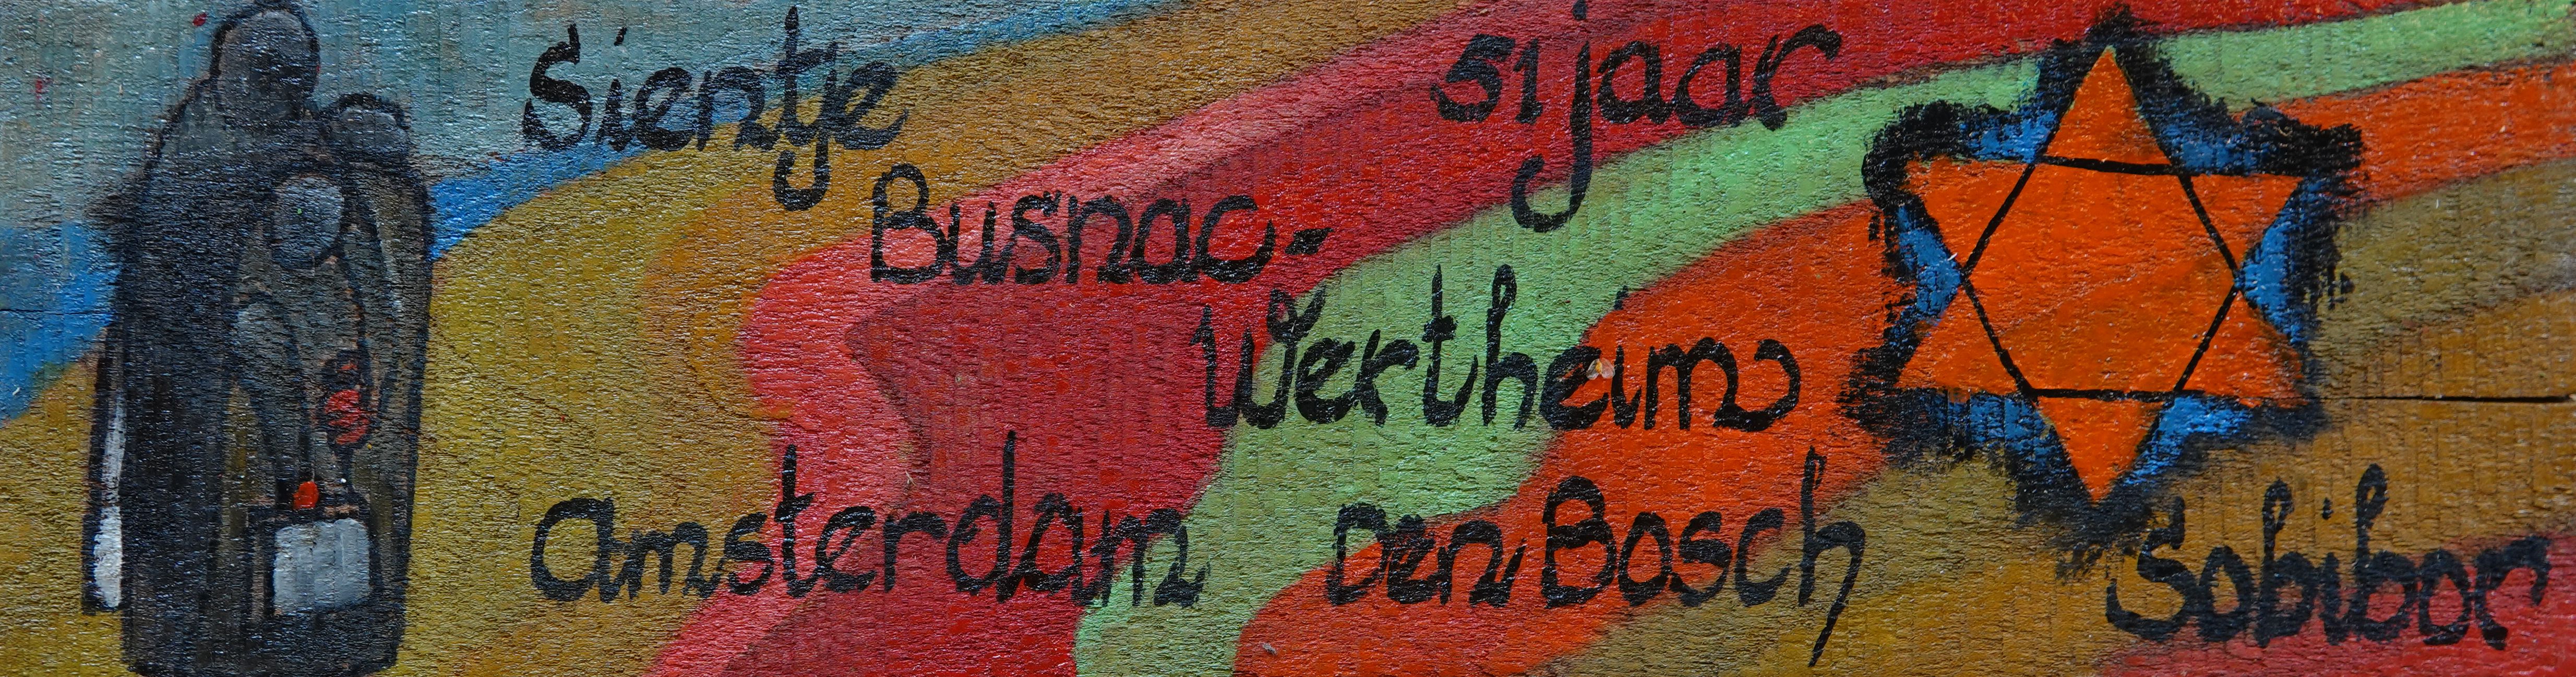 Sientje 51 jaar
Busnac-
Wertheim
Amsterdam Den Bosch Sobibor